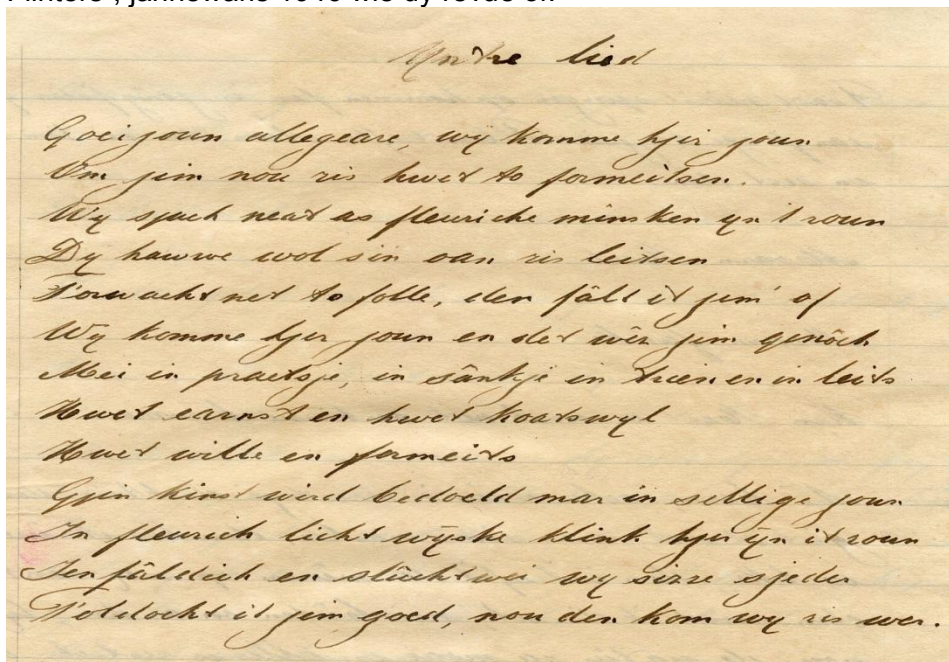 Yntre liet
Goeijoun allegeare, wy komme hjir joun
Om jim nou ris hwet to formeitsen.
Wy sjuch neat as fleuriche minsken yn 't roun
Dy hawwe wol sin oan ris leitsen
Forwacht net to folle, den fâlt it jim' of
Wy komme hjir joun en det wêr jim genôch
Mei in praetsje, in sântsje in trien en in leits
Hwet earnst en hwet koartswyl
Hwet wille en formeits
Gjin kinst wird bedoeld mar in sellige joun
In fleurich licht wyske klink hjir yn it roun
Ienfâldich en sljucht wei wy sizze sjeder
Foldocht it jim goed, nou den kom wy ris wer.